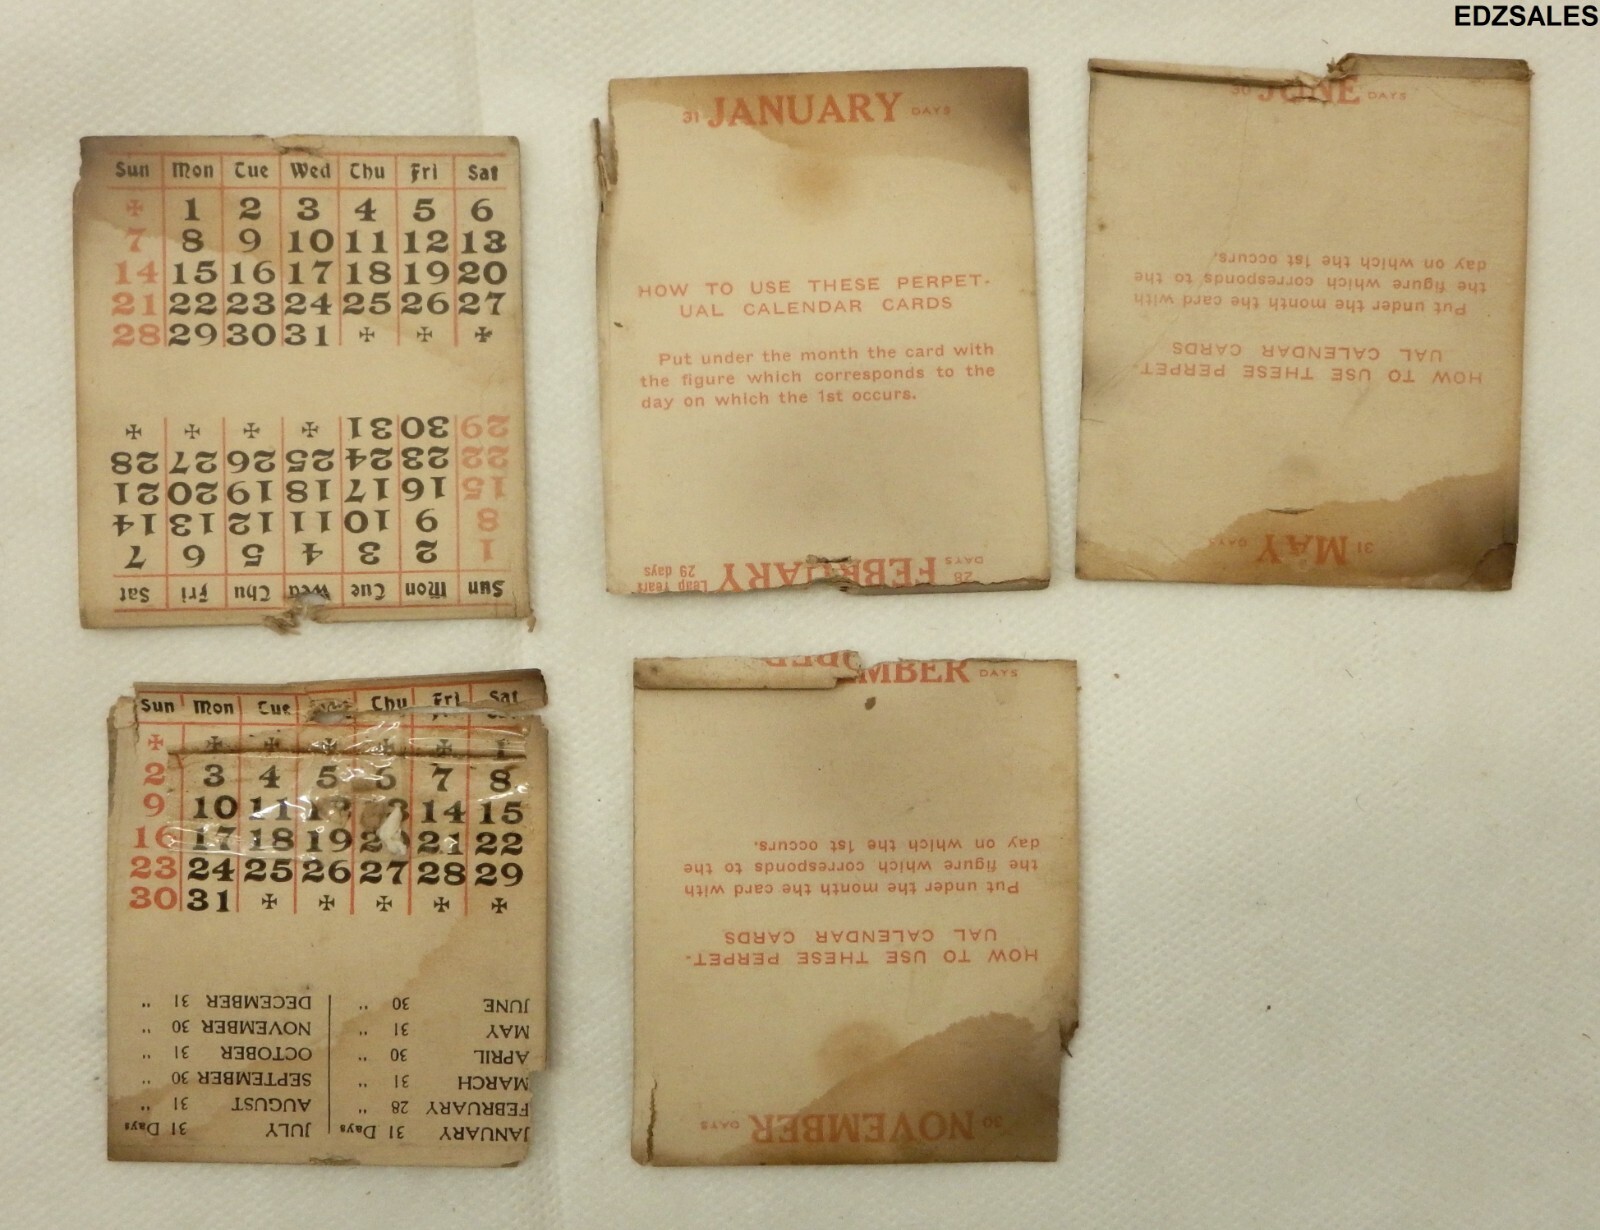 EDZSALES
Sun Mon Tue Wed Thu Fri Sat
✠ 1 2 3 4 5 6
7 8 9 10 11 12 13
14 15 16 17 18 19 20
21 22 23 24 25 26 27
28 29 30 31 ✠ ✠ ✠
Sun Mon Tue Wed Thu Fri Sat
1 2 3 4 5 6 7
8 9 10 11 12 13 14
15 16 17 18 19 20 21
22 23 24 25 26 27 28
29 30 31 ✠ ✠ ✠ ✠
31 JANUARY DAYS
HOW TO USE THESE PERPET-
UAL CALENDAR CARDS
Put under the month the card with
the figure which corresponds to the
day on which the 1st occurs.
28 DAYS FEBRUARY Leap Years 29 days
30 JUNE DAYS
31 MAY DAYS
HOW TO USE THESE PERPET-
UAL CALENDAR CARDS
Put under the month the card with
the figure which corresponds to the
day on which the 1st occurs.
Sun Mon Tue Thu Fri Sat
✠ ✠ ✠ ✠ ✠ ✠ 1
2 3 4 5 6 7 8
9 10 11 12 13 14 15
16 17 18 19 20 21 22
23 24 25 26 27 28 29
30 31 ✠ ✠ ✠ ✠ ✠
JANUARY 31 Days JULY 31 Days
FEBRUARY 28 " AUGUST 31 "
MARCH 31 " SEPTEMBER 30 "
APRIL 30 " OCTOBER 31 "
MAY 31 " NOVEMBER 30 "
JUNE 30 " DECEMBER 31 "
MBER DAYS
30 NOVEMBER DAYS
HOW TO USE THESE PERPET-
UAL CALENDAR CARDS
Put under the month the card with
the figure which corresponds to the
day on which the 1st occurs.